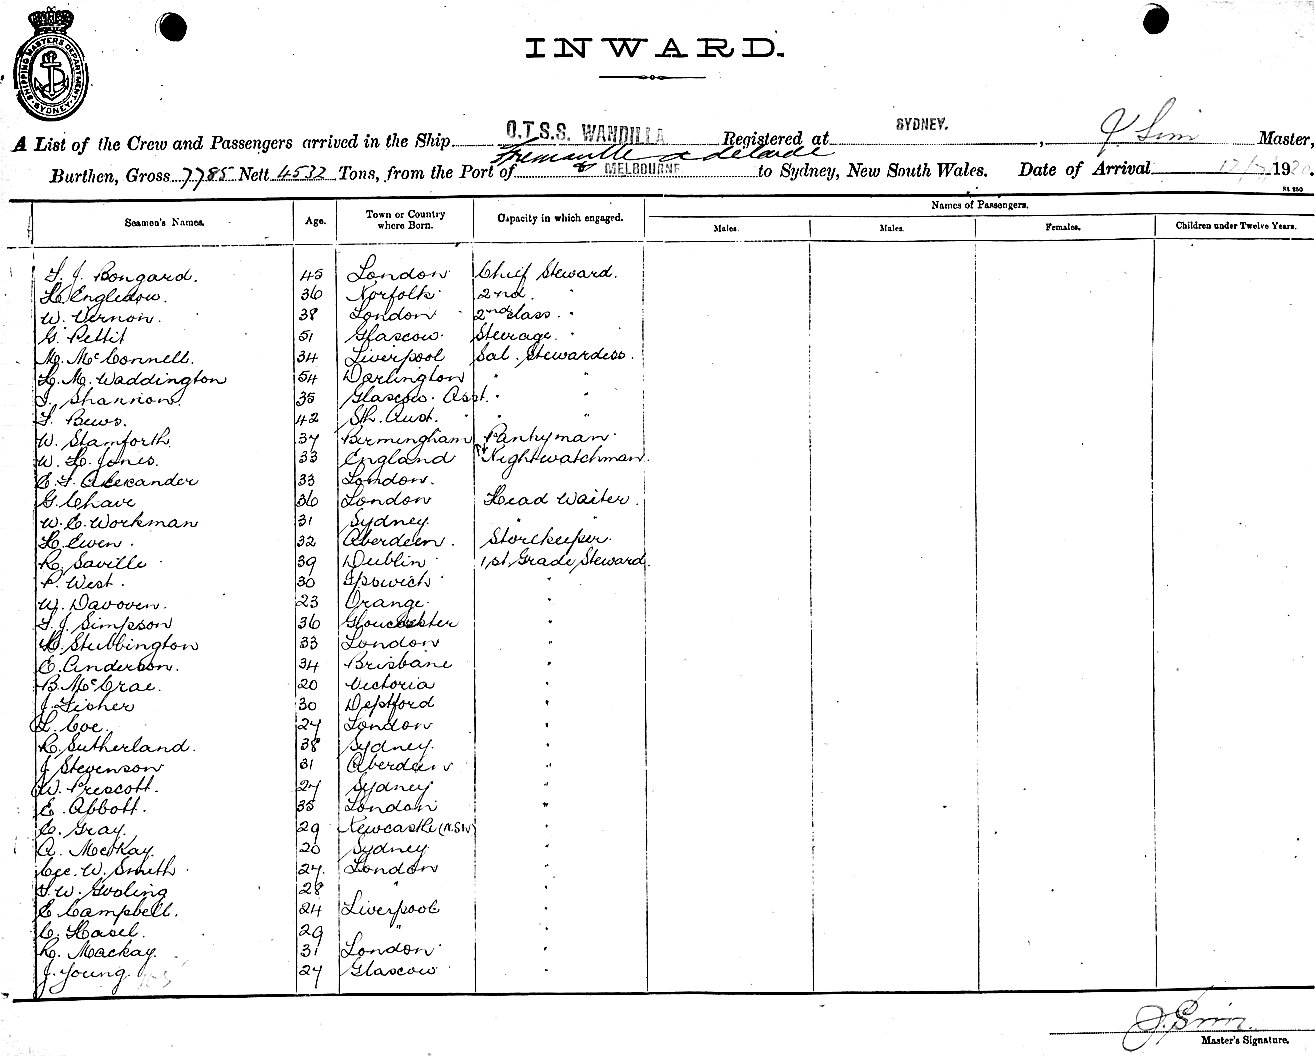 SHIPPING MASTERS DEPARTMENT SYDNEY
INWARD.
A List of the Crew and Passengers arrived in the Ship O.T.S.S. WANDILLA Registered at SYDNEY. , J. Sim Master,
Fremantle Adelaide
Burthen, Gross 7785 Nett 4532 Tons, from the Port of & MELBOURNE to Sydney, New South Wales. Date of Arrival 1920.
Seamen's Names. Age. Town or Country where Born. Capacity in which engaged. Names of Passengers.
Males. Males. Females. Children under Twelve Years.
F. J. Bongard. 45 London Chief Steward.
H. Engledow. 36 Norfolk 2nd. "
W. Vernon. 38 London 2nd class. "
G. Pettit 51 Glascow. Steerage. "
M. McConnell. 34 Liverpool Sal. Stewardess.
L. M. Waddington 54 Darlington " "
J. Shannon. 35 Glascow. Asst. " "
F. Bews. 42 Sth. Aust. " "
W. Stamforth. 37 Birmingham Pantryman.
W. H. Jones. 33 England Nightwatchman.
E. F. Alexander 33 London.
G. Chave 36 London Head Waiter.
W. C. Workman 31 Sydney " "
H. Ewen. 32 Aberdeen. Storekeeper.
R. Saville 39 Dublin 1st Grade Steward.
P. West. 30 Ipswich "
W. Davoven. 23 Orange. "
F. J. Simpson 36 Gloucester "
H. Stubbington 33 London "
E. Anderson. 34 Brisbane "
B. McCrae. 20 Victoria "
J. Fisher 30 Deptford "
L. Coe. 27 London "
R. Sutherland. 38 Sydney. "
J. Stevenson 31 Aberdeen "
W. Prescott. 27 Sydney "
E. Abbott. 35 London "
C. Gray. 29 Newcastle (N.S.W) "
A. McKay. 20 Sydney "
Geo. W. Smith 27. London "
F. W. Gooling 28 " "
E. Campbell. 24 Liverpool "
C. Hasel. 29 " "
R. Mackay. 31 London "
J. Young. 27 Glascow "
J. Sim.
Master's Signature.